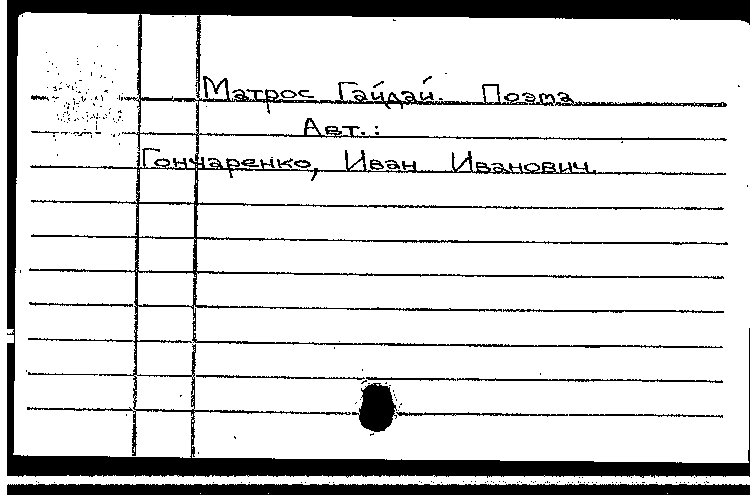 Матрос Гайдай. Поэма
Авт.:
Гончаренко, Иван Иванович.